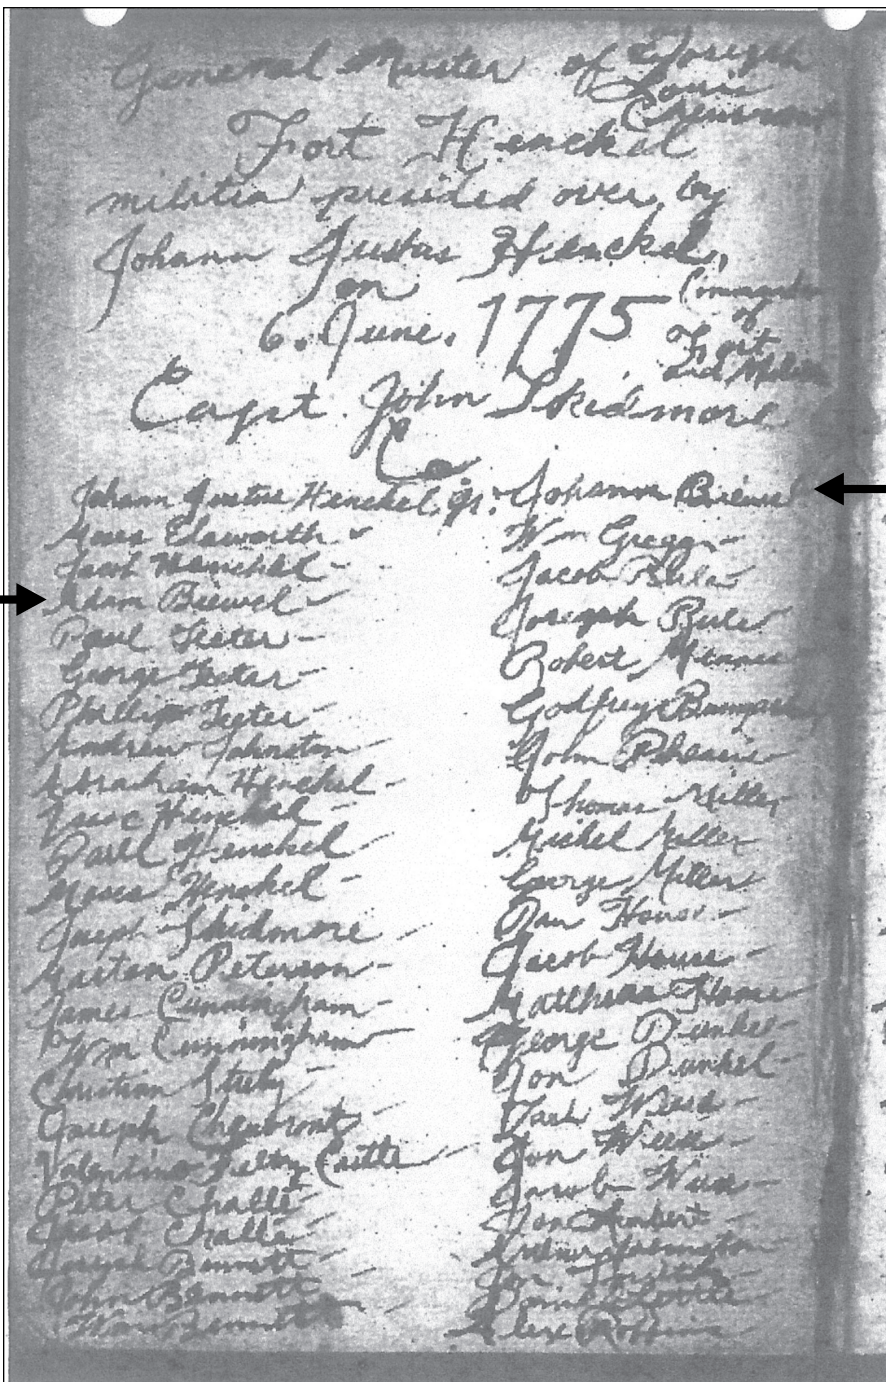 General Muster of Joseph
Louis
Fort Henckel
militia presided over by
Johann Justus Henckel,
on
6. June. 1775
Commander
of
Fort
and Militia
Capt. John Skidmore
Co
Johann Justus Henckel Jr.
Moses Elsworth
Jacob Henckel
Adam Biewel
Paul Teter
George Teter
Phillip Teter
Andrew Johnston
Abraham Henckel
Isaac Henckel
Paul Henckel
Moses Henckel
Joseph Skidmore
Martan Peterson
James Cunningham
Wm Cunningham
Christian
Joseph Cheuvront
Valentine Castle
Peter Challe
Jacob Challe
Joseph Bennett
John Bennett
Wm Bennett
Johann Biewel
Wm Gregg
Jacob
Joseph
Robert Minnes
Godfrey
John
Thomas Miller
Michel Miller
George Miller
Dan House
Jacob House
Matthias House
George Dunkel
Jon Dunkel
Jon Weese
Jacob Weese
Jon Lambert
Jon
Alex Robbins